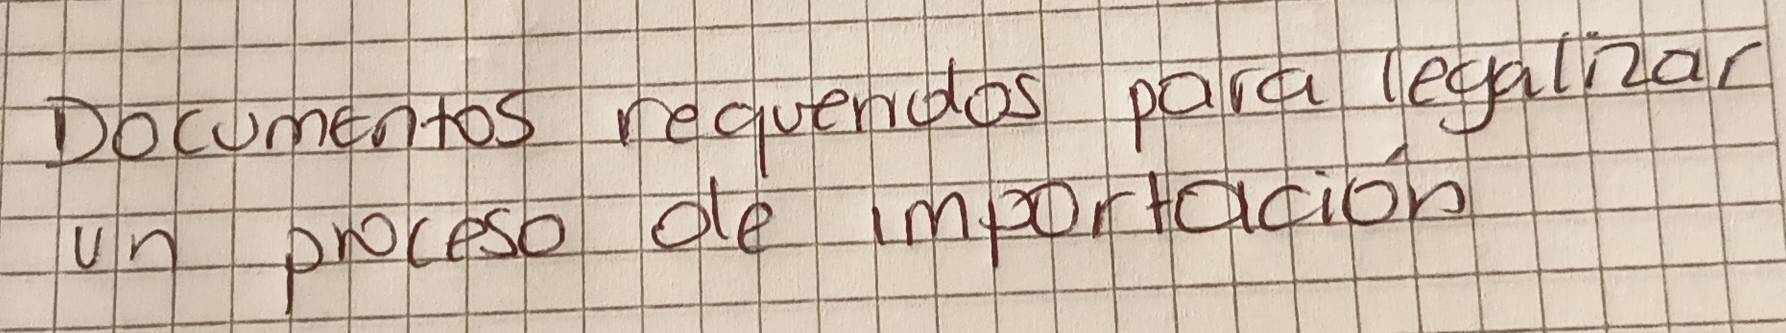 Documentos requeridos para legalizar
un proceso de importación